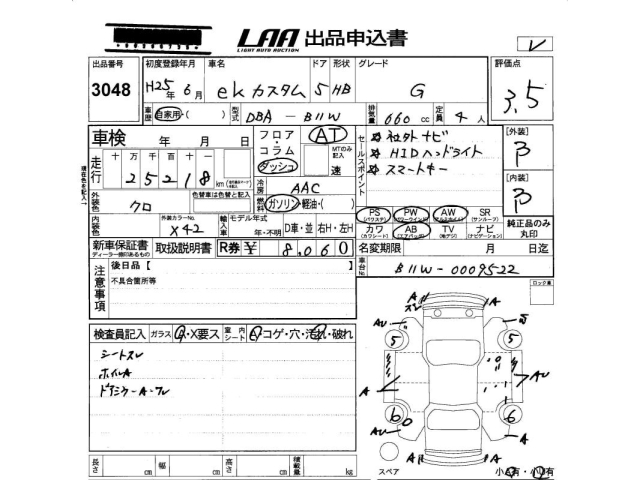 LAA 出品申込書
LIGHT AUTO AUCTION
出品番号 3048
初度登録年月 H25年6月
車名 ekカスタム
ドア 5
形状 HB
グレード G
評価点 3.5
車歴 自家用・( )
型式 DBA - B11W
排気量 660 cc
定員 4 人
車検 年 月 日
フロア・コラム ダッシュ
AT
MTのみ記入 速
セールスポイント
☆ 社外ナビ
☆ HIDヘッドライト
☆ スマートキー
[外装] B
[内装] B
走行 十万千百十一
25218 km
冷房 AAC
燃料 ガソリン・軽油・( )
外装色 クロ
色替車は色替と記入
内装色
外装カラーNo. X42
輸入車 モデル年式 年・不明
D車・並 右H・左H
PS (パワステ) PW (パワーウインド) AW (アルミホイル) SR (サンルーフ)
カワ (カワシート) AB (エアバック) TV (地デジ) ナビ (ナビゲーション)
純正品のみ丸印
新車保証書
ディーラー捺印あるもの
取扱説明書
R券 ¥ 8,060
名変期限 月 日迄
車台No. B11W-0009522
注意事項
後日品【 】
不具合箇所等
ロック車
検査員記入 ガラス G・X要ス
室内シート コゲ・穴・汚れ・破れ
シートスレ
ホイルA
A スレ A
AU
5 5
A AU
6 6
AU A
A A
スペア
長さ cm 幅 cm 高さ cm 積載量 kg